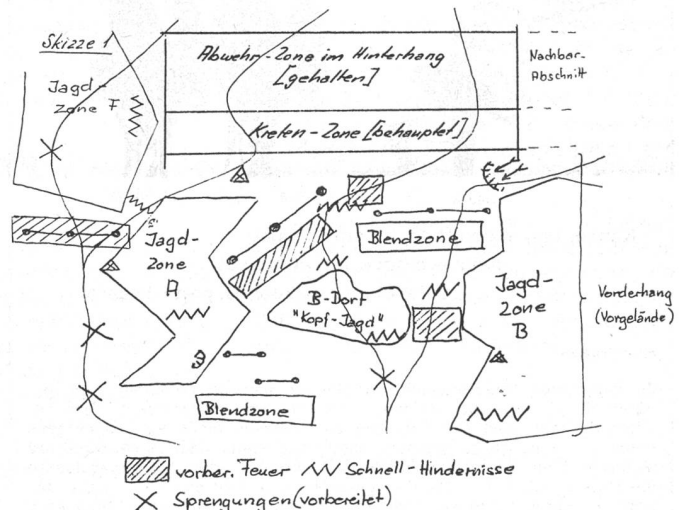 Skizze 1
Abwehr-Zone im Hinterhang
[gehalten]
Nachbar-
Abschnitt
Jagd-
Zone F
Kreten-Zone [behauptet]
Blendzone
Jagd-
Zone
A
B-Dorf
"Kopf-Jagd"
Jagd-
Zone
B
Vorderhang
(Vorgelände)
Blendzone
vorber. Feuer
Schnell-Hindernisse
Sprengungen (vorbereitet)